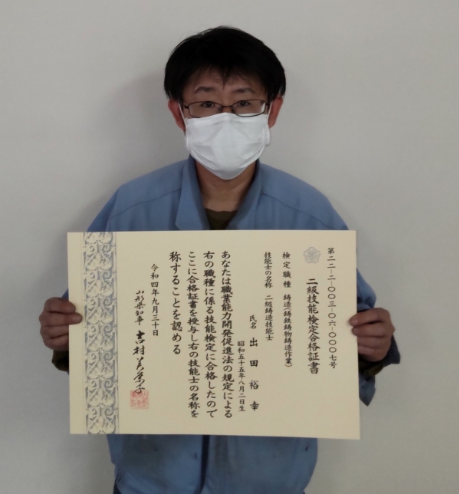 第二二-二-〇〇三-〇六-〇〇〇七号
二級技能検定合格証書
検定職種 鋳造(鋳鉄鋳物鋳造作業)
技能士の名称 二級鋳造技能士
氏名 出田裕幸
昭和五十五年八月二日生
あなたは職業能力開発促進法の規定による
右の職種に係る技能検定に合格したので
ここに合格証書を授与し右の技能士の名称を
称することを認める
令和四年九月三十日
山形県知事 吉村美栄子